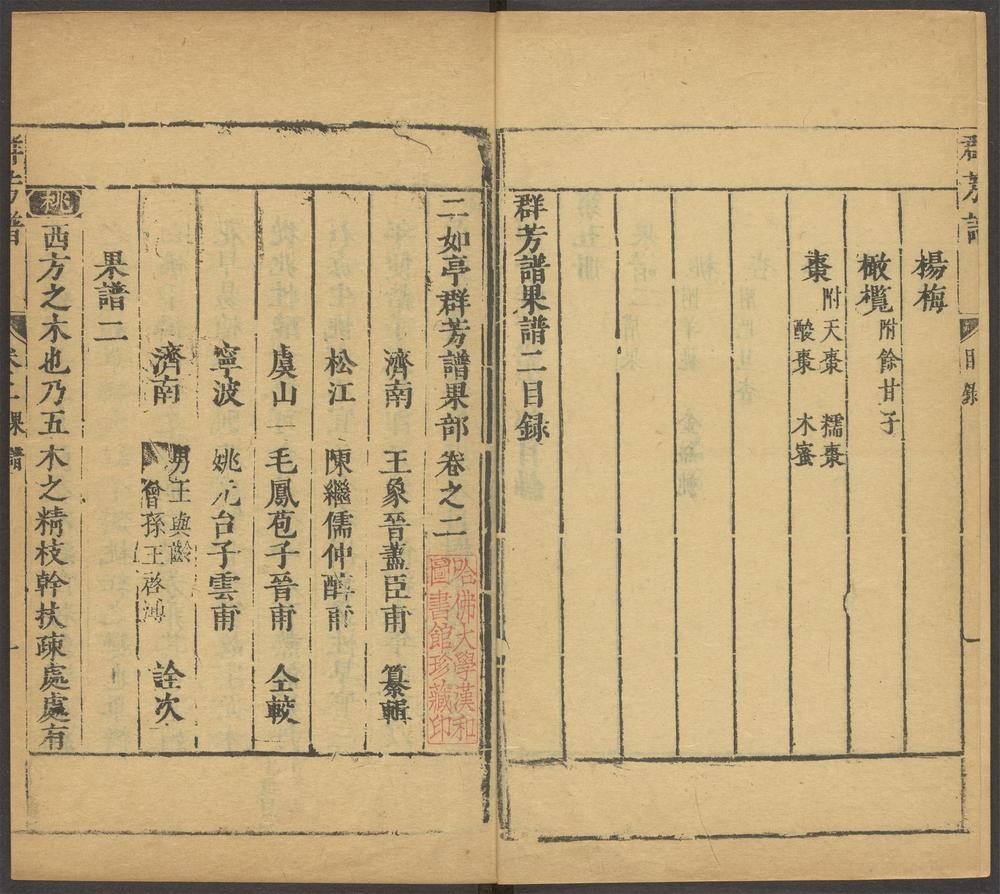 群芳譜
目錄
一
楊梅
橄欖 附餘甘子
棗 附天棗 糯棗
酸棗 木蜜
群芳譜果譜二目錄
二如亭群芳譜果部卷之二
哈佛大學漢和
圖書館珍藏印
濟南 王象晉藎臣甫 纂輯
松江 陳繼儒仲醇甫
虞山 毛鳳苞子晉甫 仝較
寧波 姚元台子雲甫
濟南 男王與齡
曾孫王啓溥 詮次
果譜二
桃 西方之木也乃五木之精枝幹扶疎處處有
群芳譜
卷二果譜
一